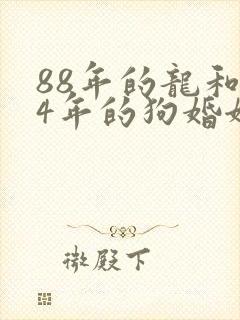 88年的龍和
4年的狗婚姻
微殿下